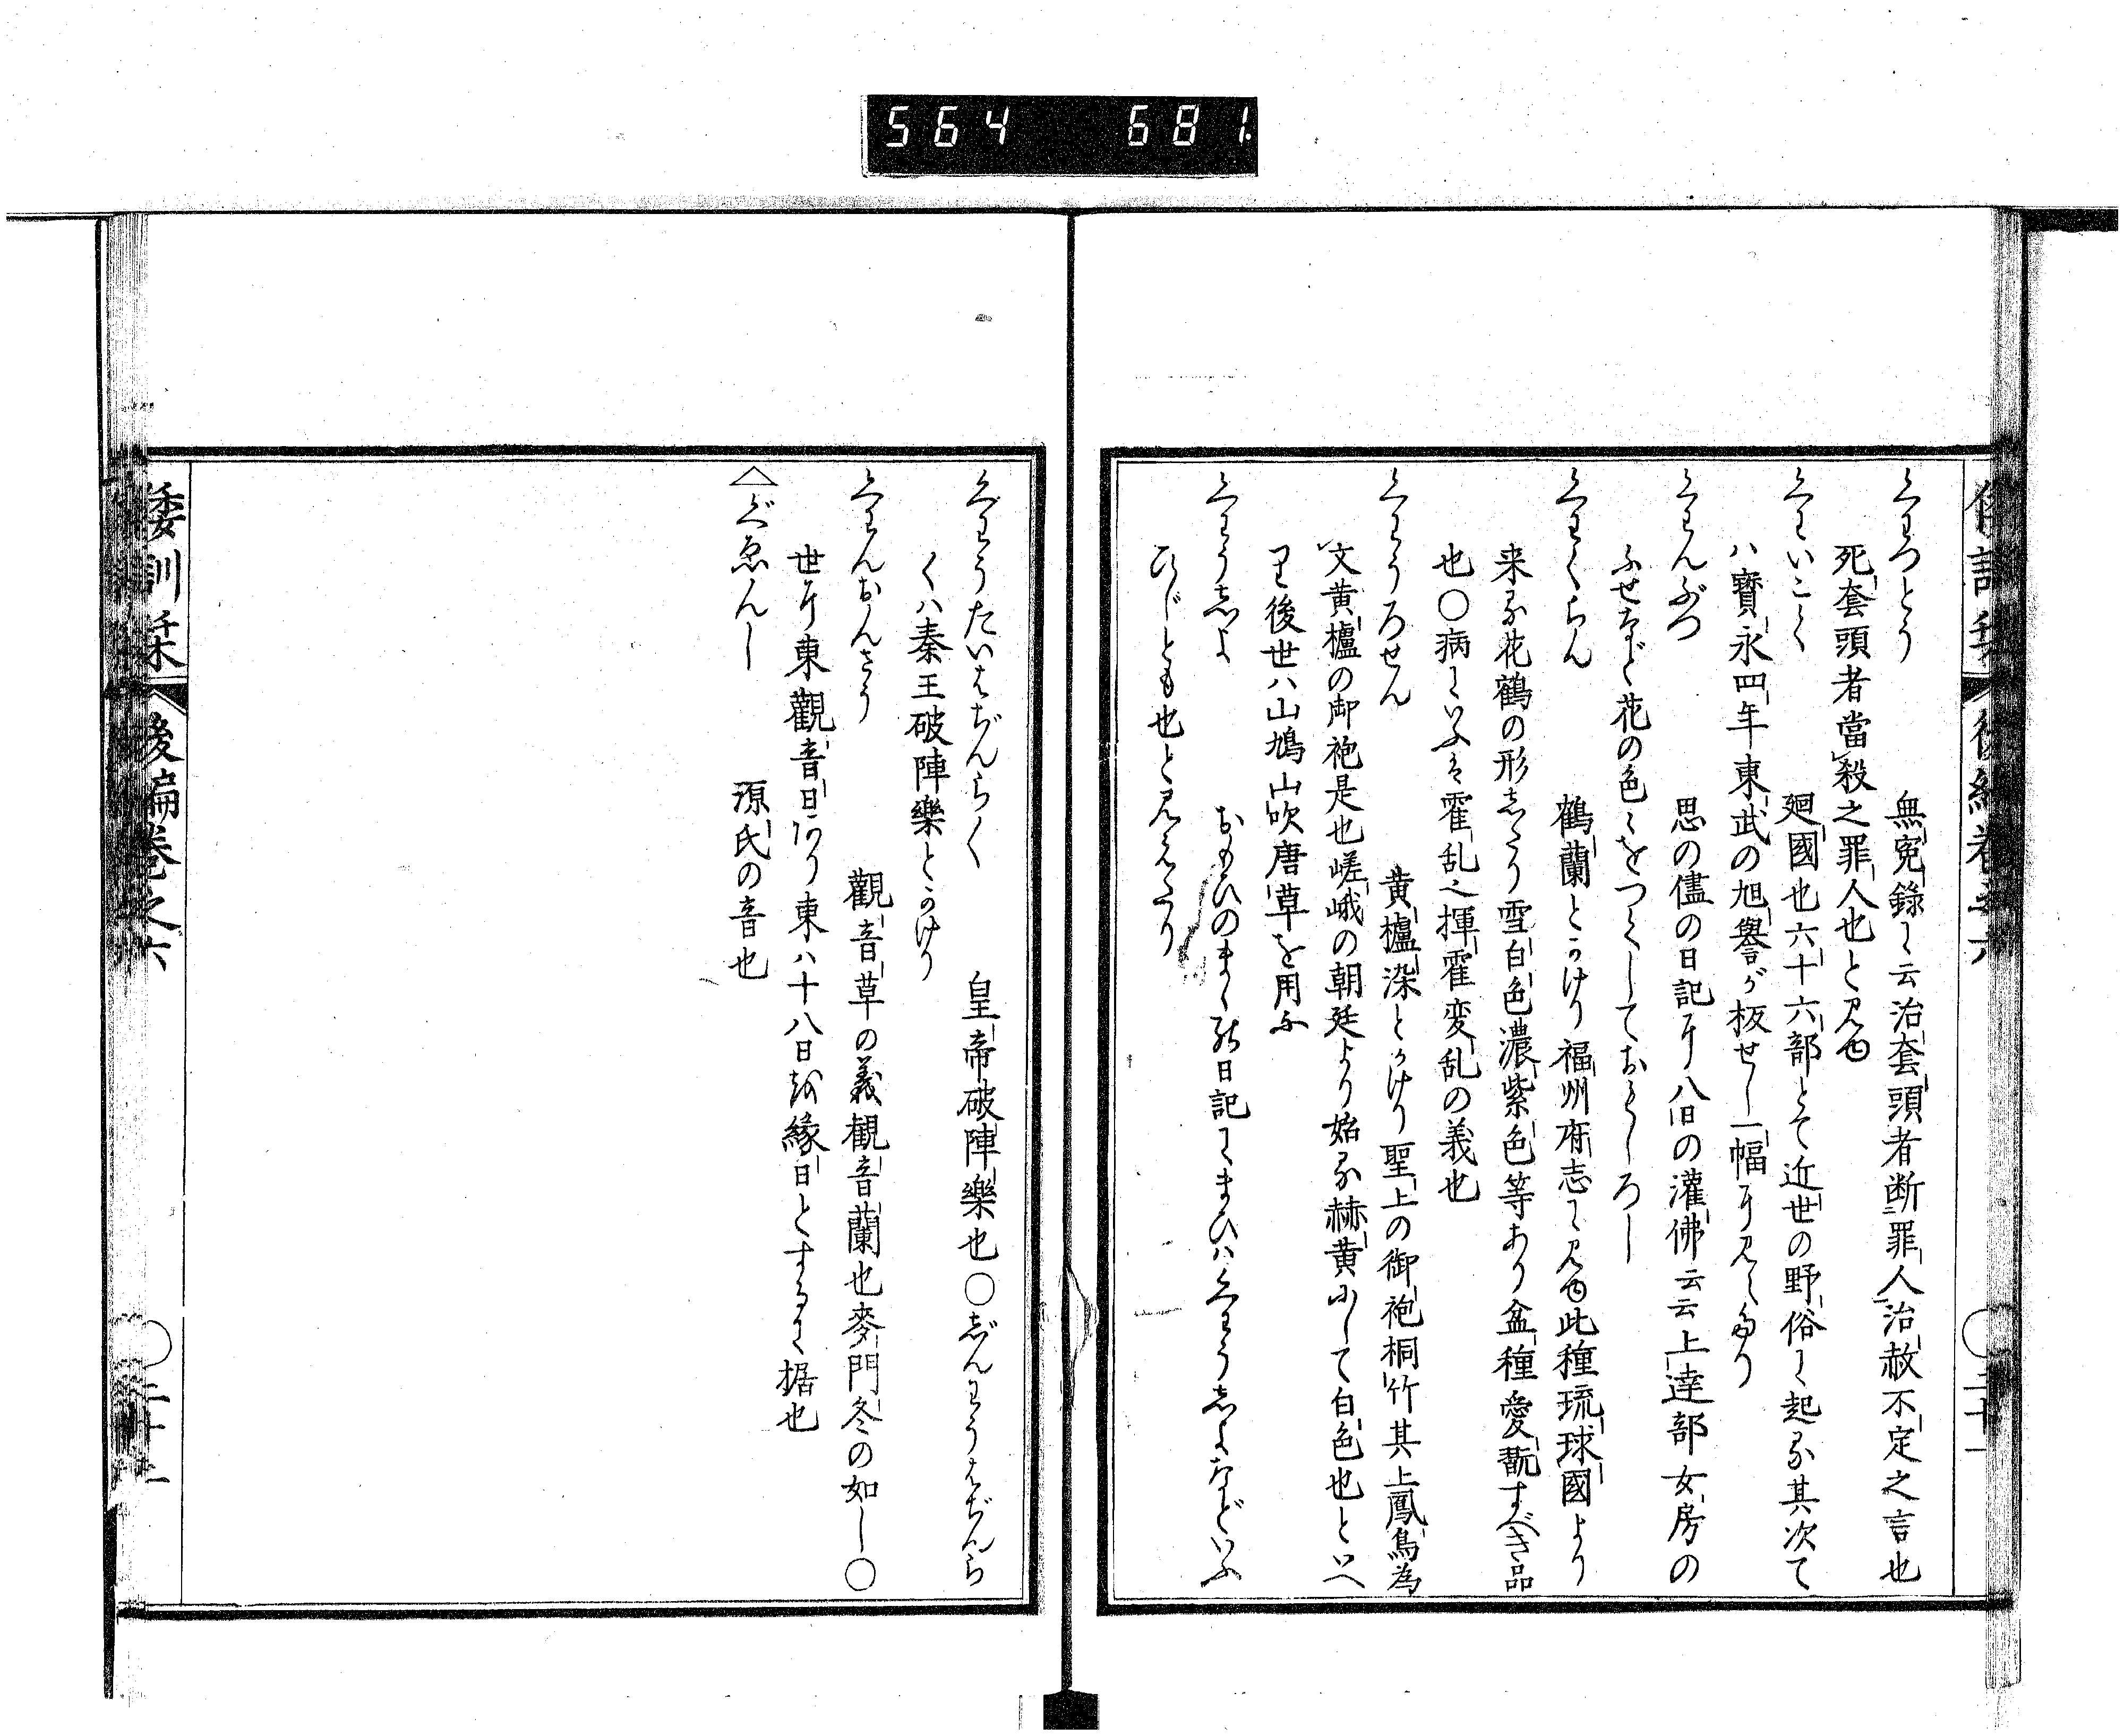 564 681
くわつとう 無寃録に云治套頭者断罪人治赦不定之言也
死套頭者當殺之罪人也と見ゆ
くわいこく 廻國也六十六部とて近世の野俗に起る其次て
ハ寶永四年東武の旭譽が板せし一幅に見えたり
くわんぶつ 思の儘の日記に八日の灌佛云云上達部女房の
ふせなど花の色々をつくしておもしろし
くわくらん 鶴蘭とかけり福州府志に見ゆ此種琉球國より
来る花鶴の形したり雪白色濃紫色等あり盆種愛翫すべき品
也〇病にいふは霍乱也揮霍変乱の義也
くわうろせん 黄櫨染とかけり聖上の御袍桐竹其上鳳鳥為
文黄櫨の御袍是也嵯峨の朝廷より始る赫黄にして白色也といへ
り後世ハ山鳩山吹唐草を用ふ
くわうしよ おもひのまゝの日記にまひハくわうしよなどいふ
ひじとも也と見えたり
倭訓栞 後編巻之六 〇二十一
くわうたいはぢんらく 皇帝破陣樂也〇じんわうはぢんら
くハ秦王破陣樂とかけり
くわんおんさう 觀音草の義觀音蘭也麥門冬の如し〇
世に東觀音日あり東ハ十八日を緣日とするに據也
ぐゑんじ 源氏の音也
倭訓栞 後編巻之六 〇二十二